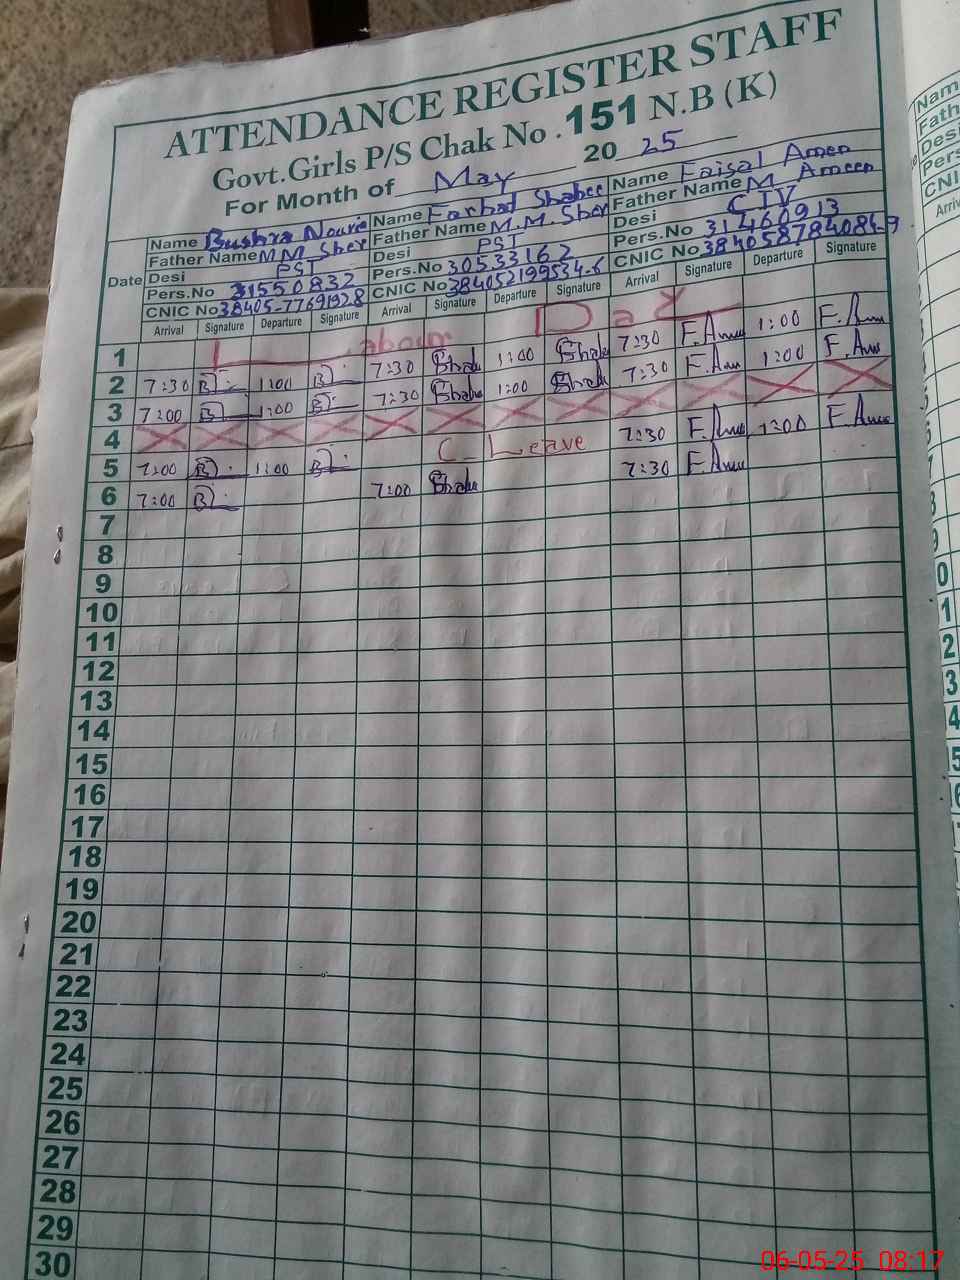 ATTENDANCE REGISTER STAFF
Govt.Girls P/S Chak No .151 N.B (K)
For Month of May 20 25
Date Name Bushra Name Farhad Name Faisal Ameen
Father Name M.M. Sher Father Name M.M. Sher Father Name M. Ameen
Desi PST Desi PST Desi CIV
Pers.No 31550832 Pers.No 30533162 Pers.No 31460913
CNIC No 38405-77691928 CNIC No 384052199534-6 CNIC No
Arrival Signature Departure Signature Arrival Signature Departure Signature Arrival Signature Departure Signature
1 Labour Day
2 7:30 1:00 7:30 1:00 7:30 F.Am 1:00 F.Am
3 7:00 1:00 7:30 1:00 7:30 F.Am 1:00 F.Am
4
5 7:00 1:00 C-Leave 7:30 F.Am 1:00 F.Am
6 7:00 7:00 7:30 F.Am
7
8
9
10
11
12
13
14
15
16
17
18
19
20
21
22
23
24
25
26
27
28
29
30
06-05-25 08:17